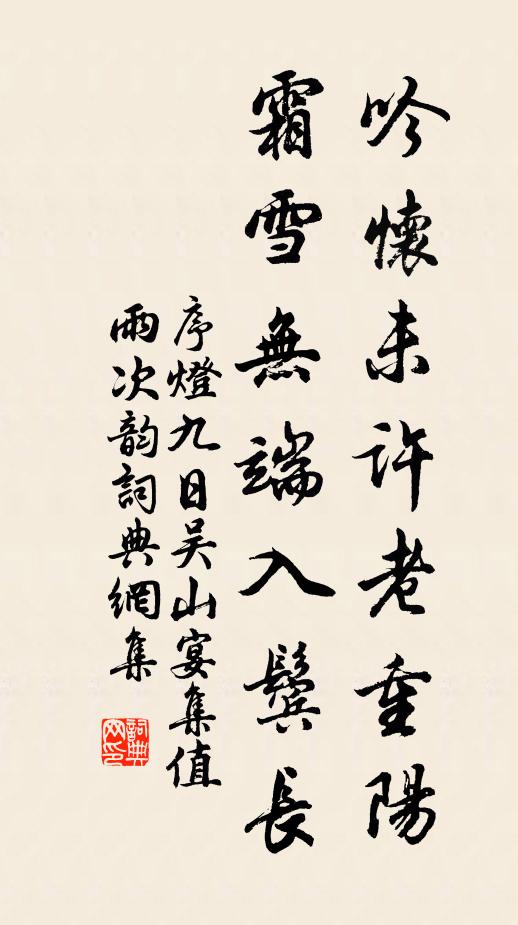 吟懷未許老重陽
霜雪無端入鬢長
序燈九日吳山宴集值
雨次韵詞典網集
詞典網印